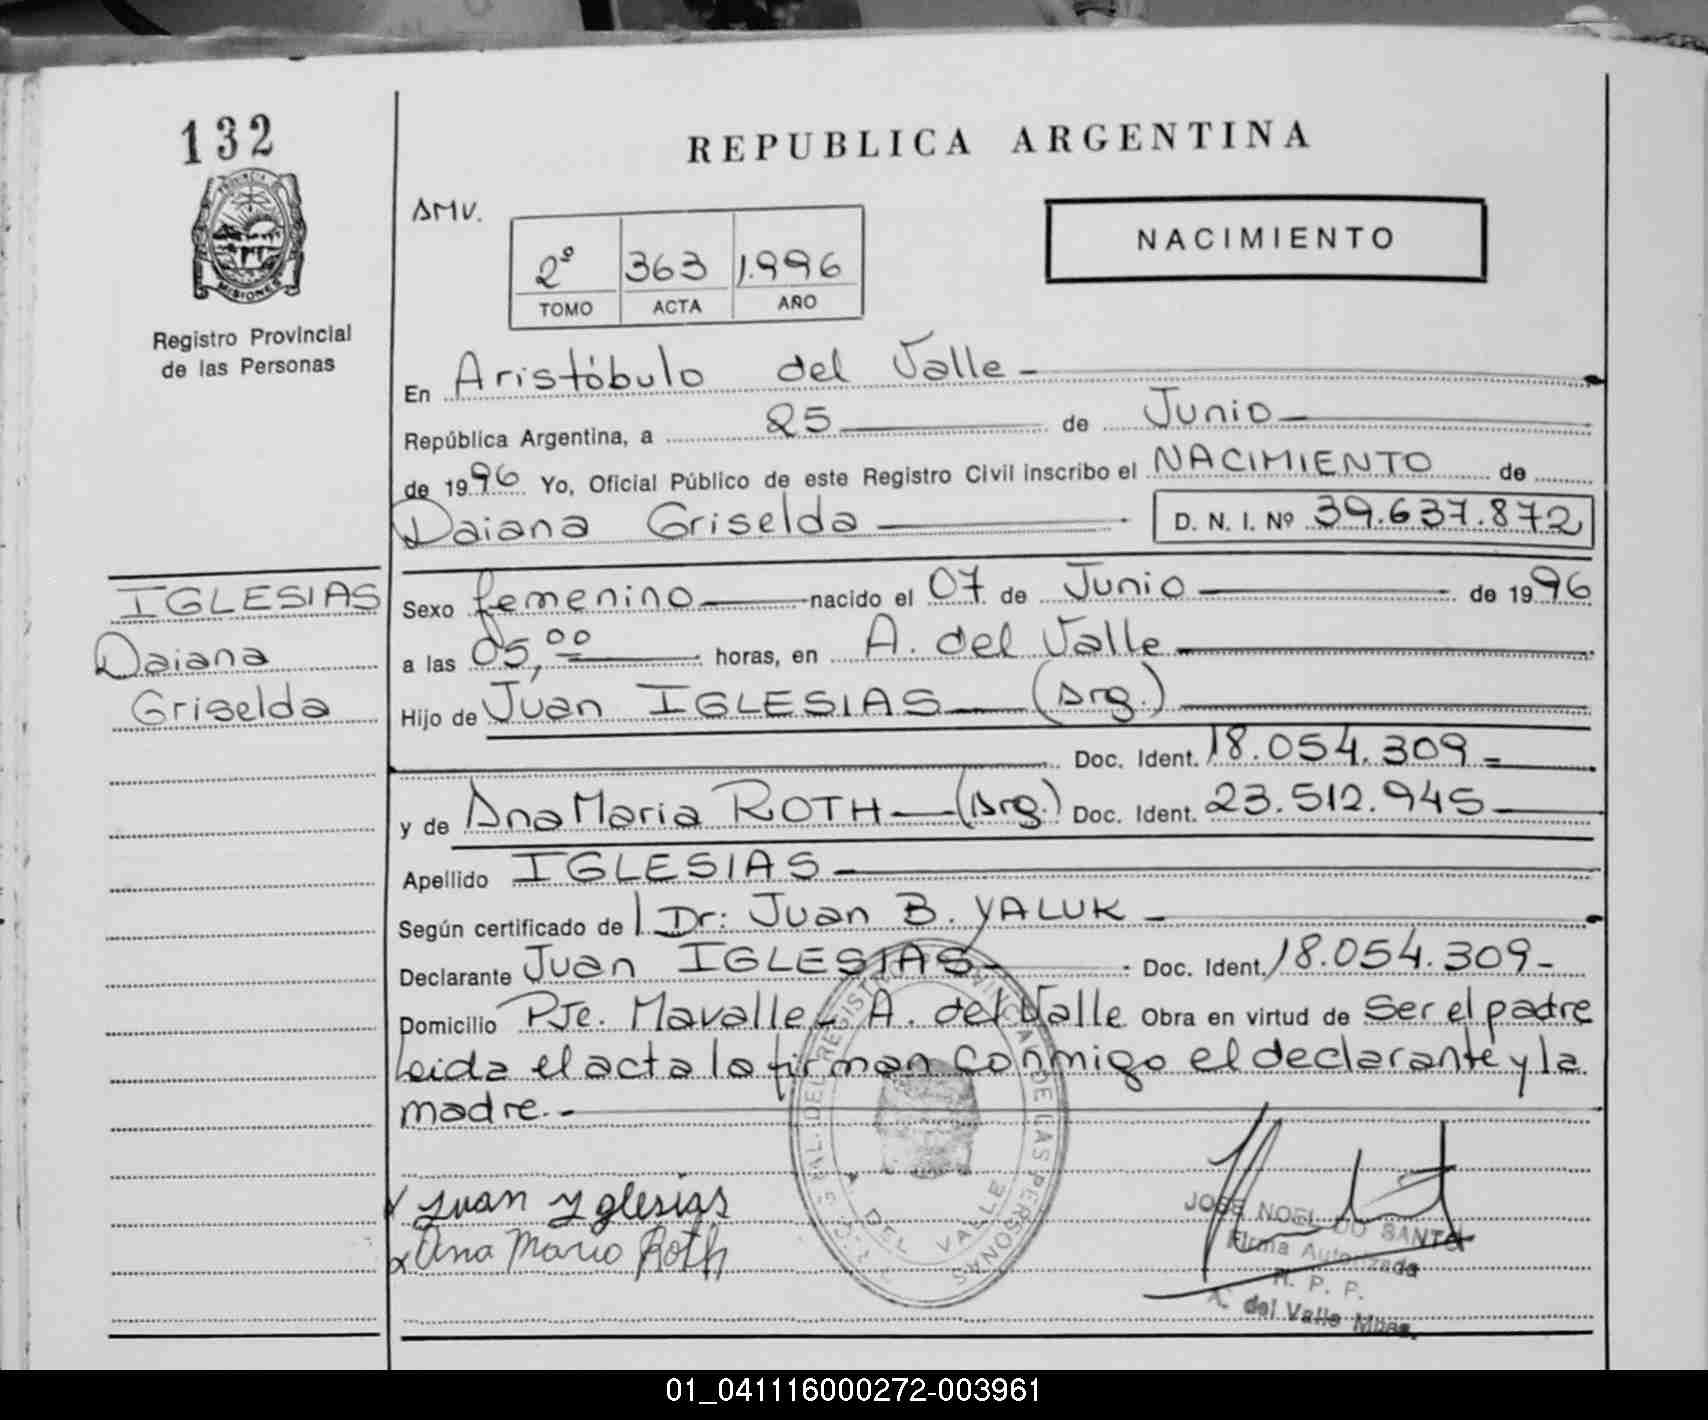 132
REPUBLICA ARGENTINA
PROVINCIA DE
MISIONES
Registro Provincial
de las Personas
AMV.
2º 363 1.996
TOMO ACTA AÑO
NACIMIENTO
En Aristóbulo del Valle -
República Argentina, a 25 de Junio
de 1996 Yo, Oficial Público de este Registro Civil inscribo el NACIMIENTO de
Daiana Griselda D. N. I. Nº 39.637.872
IGLESIAS
Daiana
Griselda
Sexo femenino nacido el 07 de Junio de 1996
a las 05,00 horas, en A. del Valle
Hijo de Juan IGLESIAS (Arg.)
Doc. Ident. 18.054.309
y de Ana Maria ROTH (Arg.) Doc. Ident. 23.512.945
Apellido IGLESIAS
Según certificado de Dr: Juan B. YALUK
Declarante Juan IGLESIAS Doc. Ident. 18.054.309-
Domicilio PJe. Mavalle- A. del Valle Obra en virtud de Ser el padre
Leida el acta la firman conmigo el declarante y la
madre.-
DEL REGISTRO PROVINCIAL DE LAS PERSONAS
DEL VALLE
x Juan Yglesias
x Ana Maria Roth
JOSE NOEL DO SANTO
Firma Autorizada
R. P. P.
A. del Valle Mnes.
01_041116000272-003961